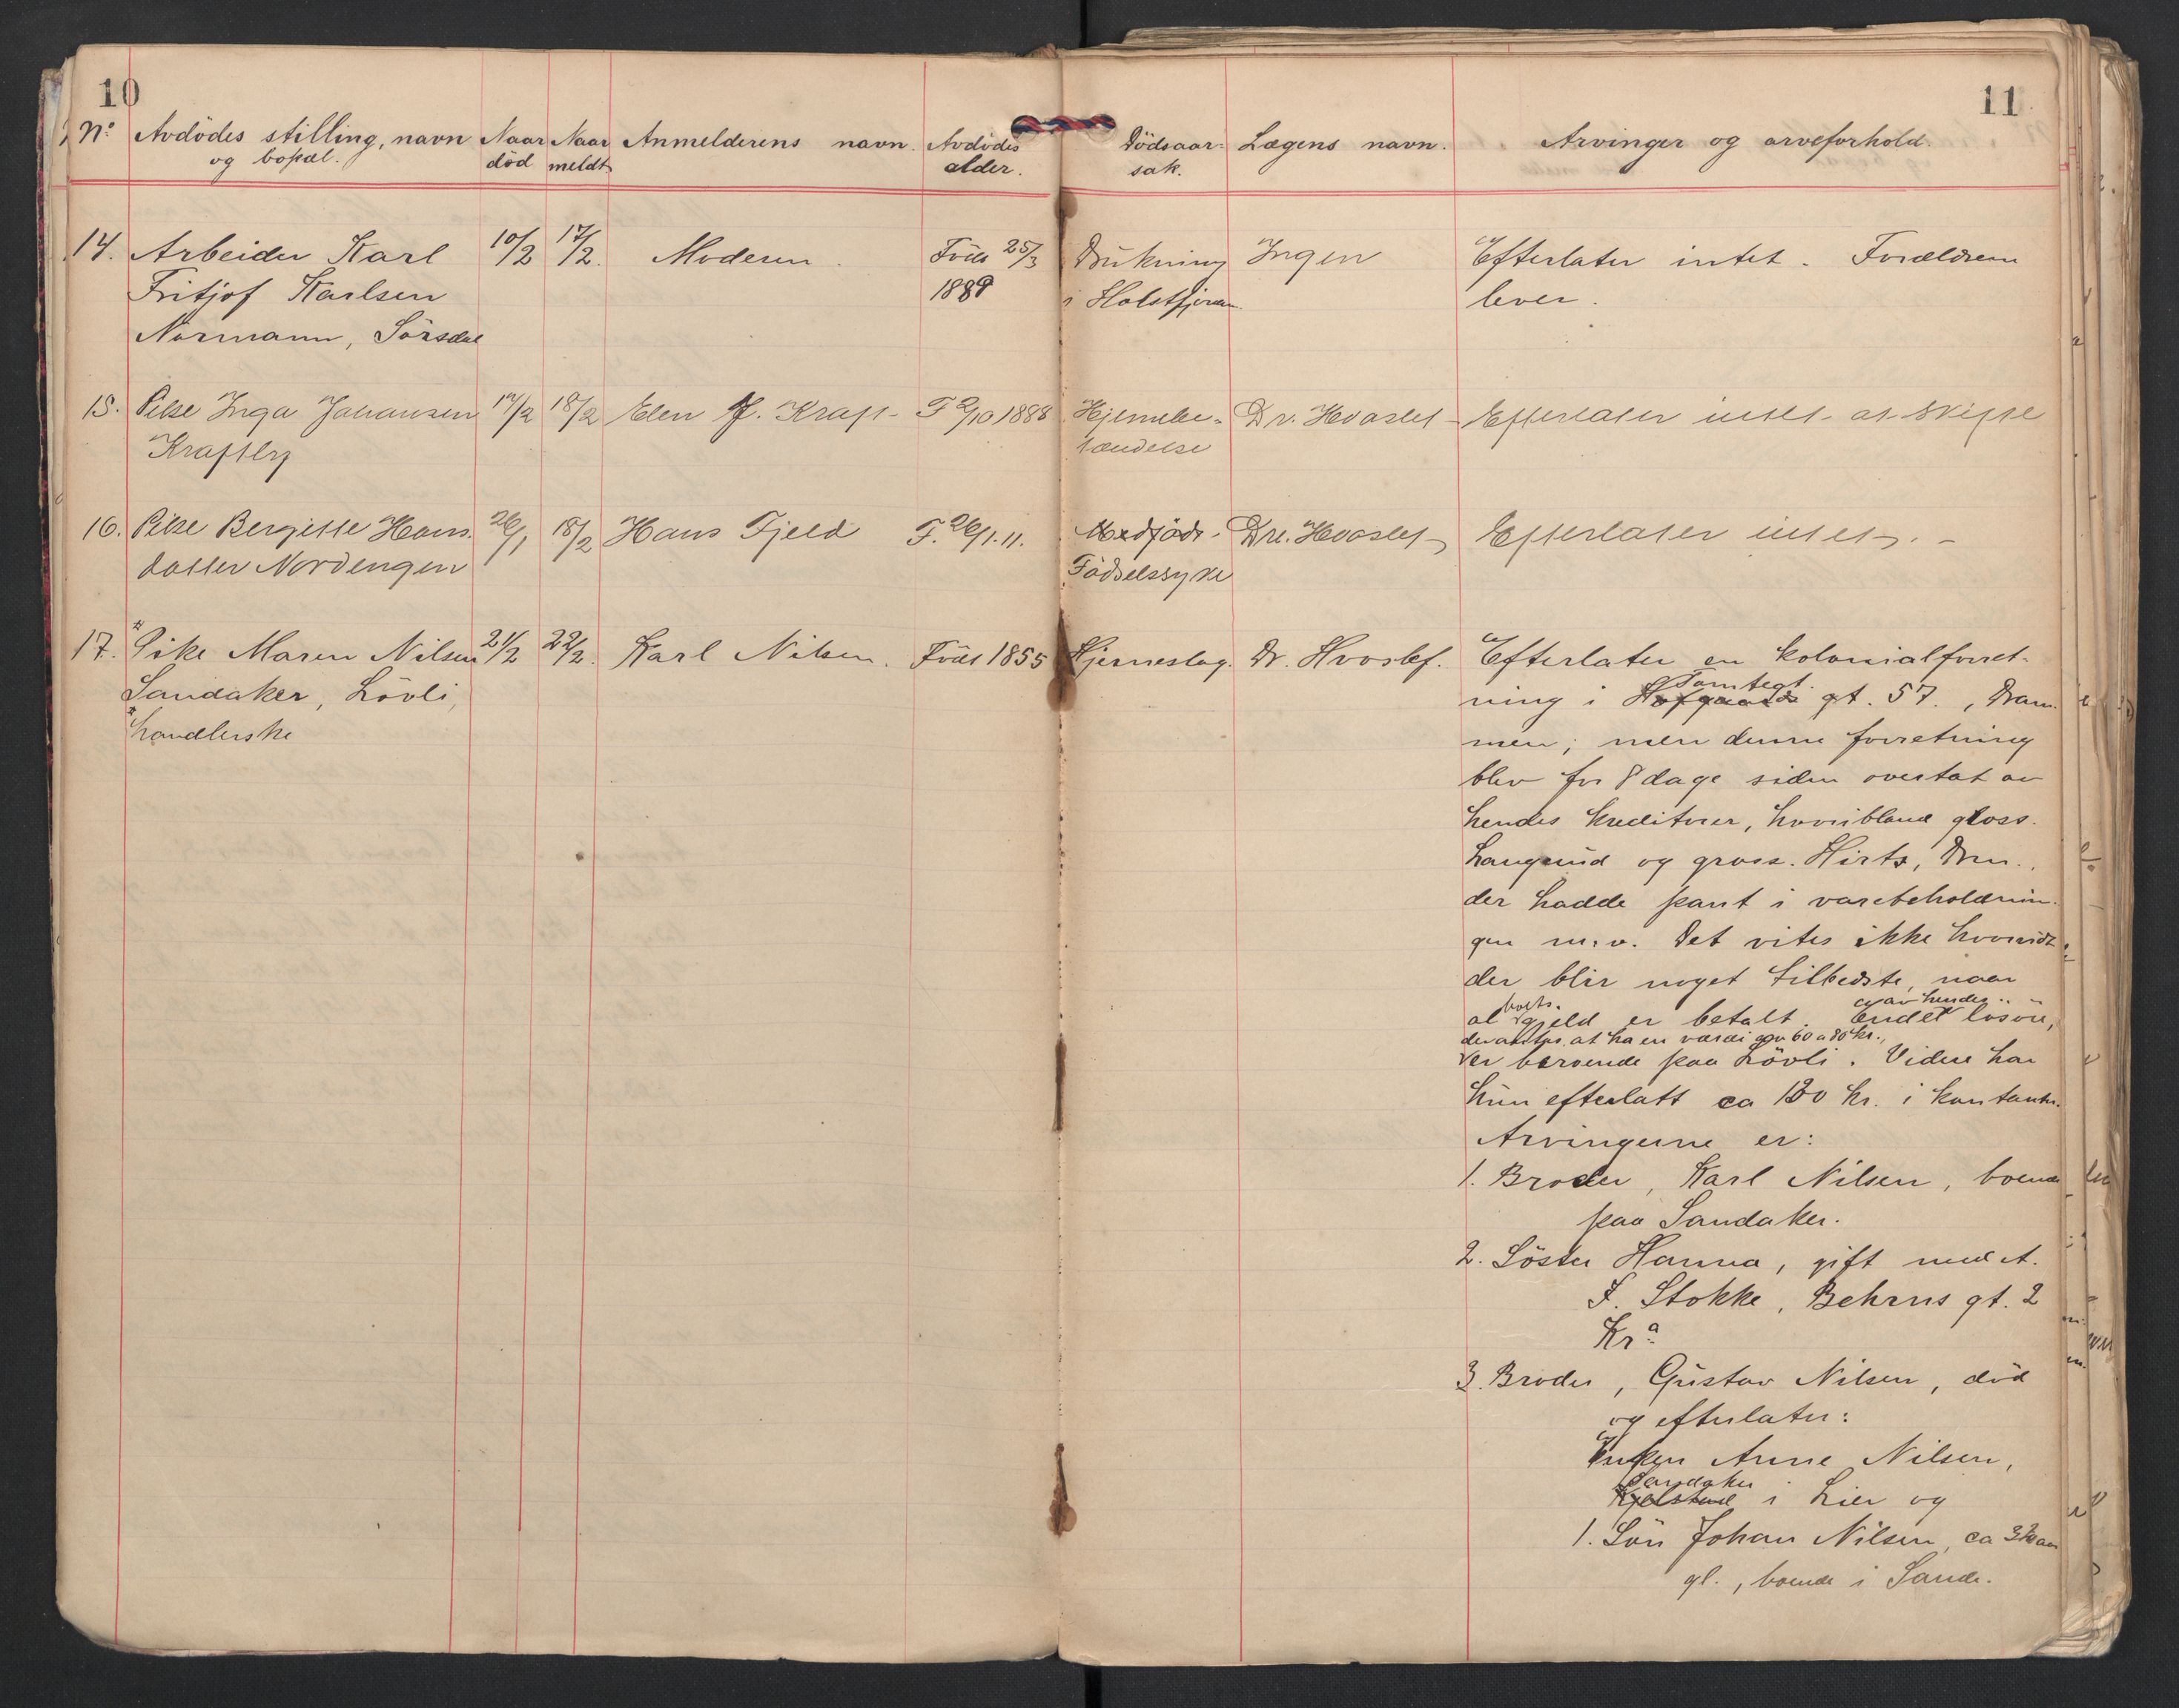 10
11
No Avdödes stilling, navn og bopæl. Naar död Naar meldt Anmelderens navn. Avdödes alder. Dödsaarsak. Lægens navn. Arvinger og arveforhold.
14. Arbeider Karl 10/2 17/2. Moderen. Född 25/3 Drukning Ingen Efterlater intet. Forældrene
Fritjof Karlsen 1889 i Holsfjorden. lever.
Normann, Sörsdal
15. Pike Inga Johansen 17/2 18/2 Elen J. Kraft F 2/10 1888 Hjernebe- Dr. Hvoslef Efterlater intet at skifte
Kraftby tændelse
16. Pike Bergitte Hans- 26/1 18/2 Hans Fjeld F. 26/1.11. Medfödt Dr. Hvoslef Efterlater intet. -
datter Nordengen Födselssyke
17. Pike Maren Nilsen 21/2 22/2. Karl Nilsen. Född 1855 Hjerneslag. Dr. Hvoslef. Efterlater en kolonialforret-
Sandaker, Lövli,
handlerske
Tomtegt.
ning i Hofgaards gt. 57., Dram-
men; men denne forretning
blev for 8 dage siden overtat av
hendes kreditorer, hvoribland gross.
Langrund og gross. Hirts, Drm.,
der hadde pant i varebeholdnin-
gen m.v. Det vites ikke hvorvidt
der blir noget tilbedste, naar
borts. av hendes
al gjeld er betalt. Endel lösöre,
der antas at ha en værdi av 60 a 80 kr.,
er beroende paa Lövli. Videre har
hun efterlatt ca 130 kr. i kontanter.
Arvingerne er:
1. Broder, Karl Nilsen, boende
paa Sandaker.
2. Söster Hanna, gift med A.
F. Stokke, Behrens gt. 2
Kra
3. Broder, Gustav Nilsen, död
og efterlater:
Enken Anne Nilsen,
Sandaker
Kjelstad i Lier og
1. Sön Johan Nilsen, ca 30 aar
gl., boende i Sande.